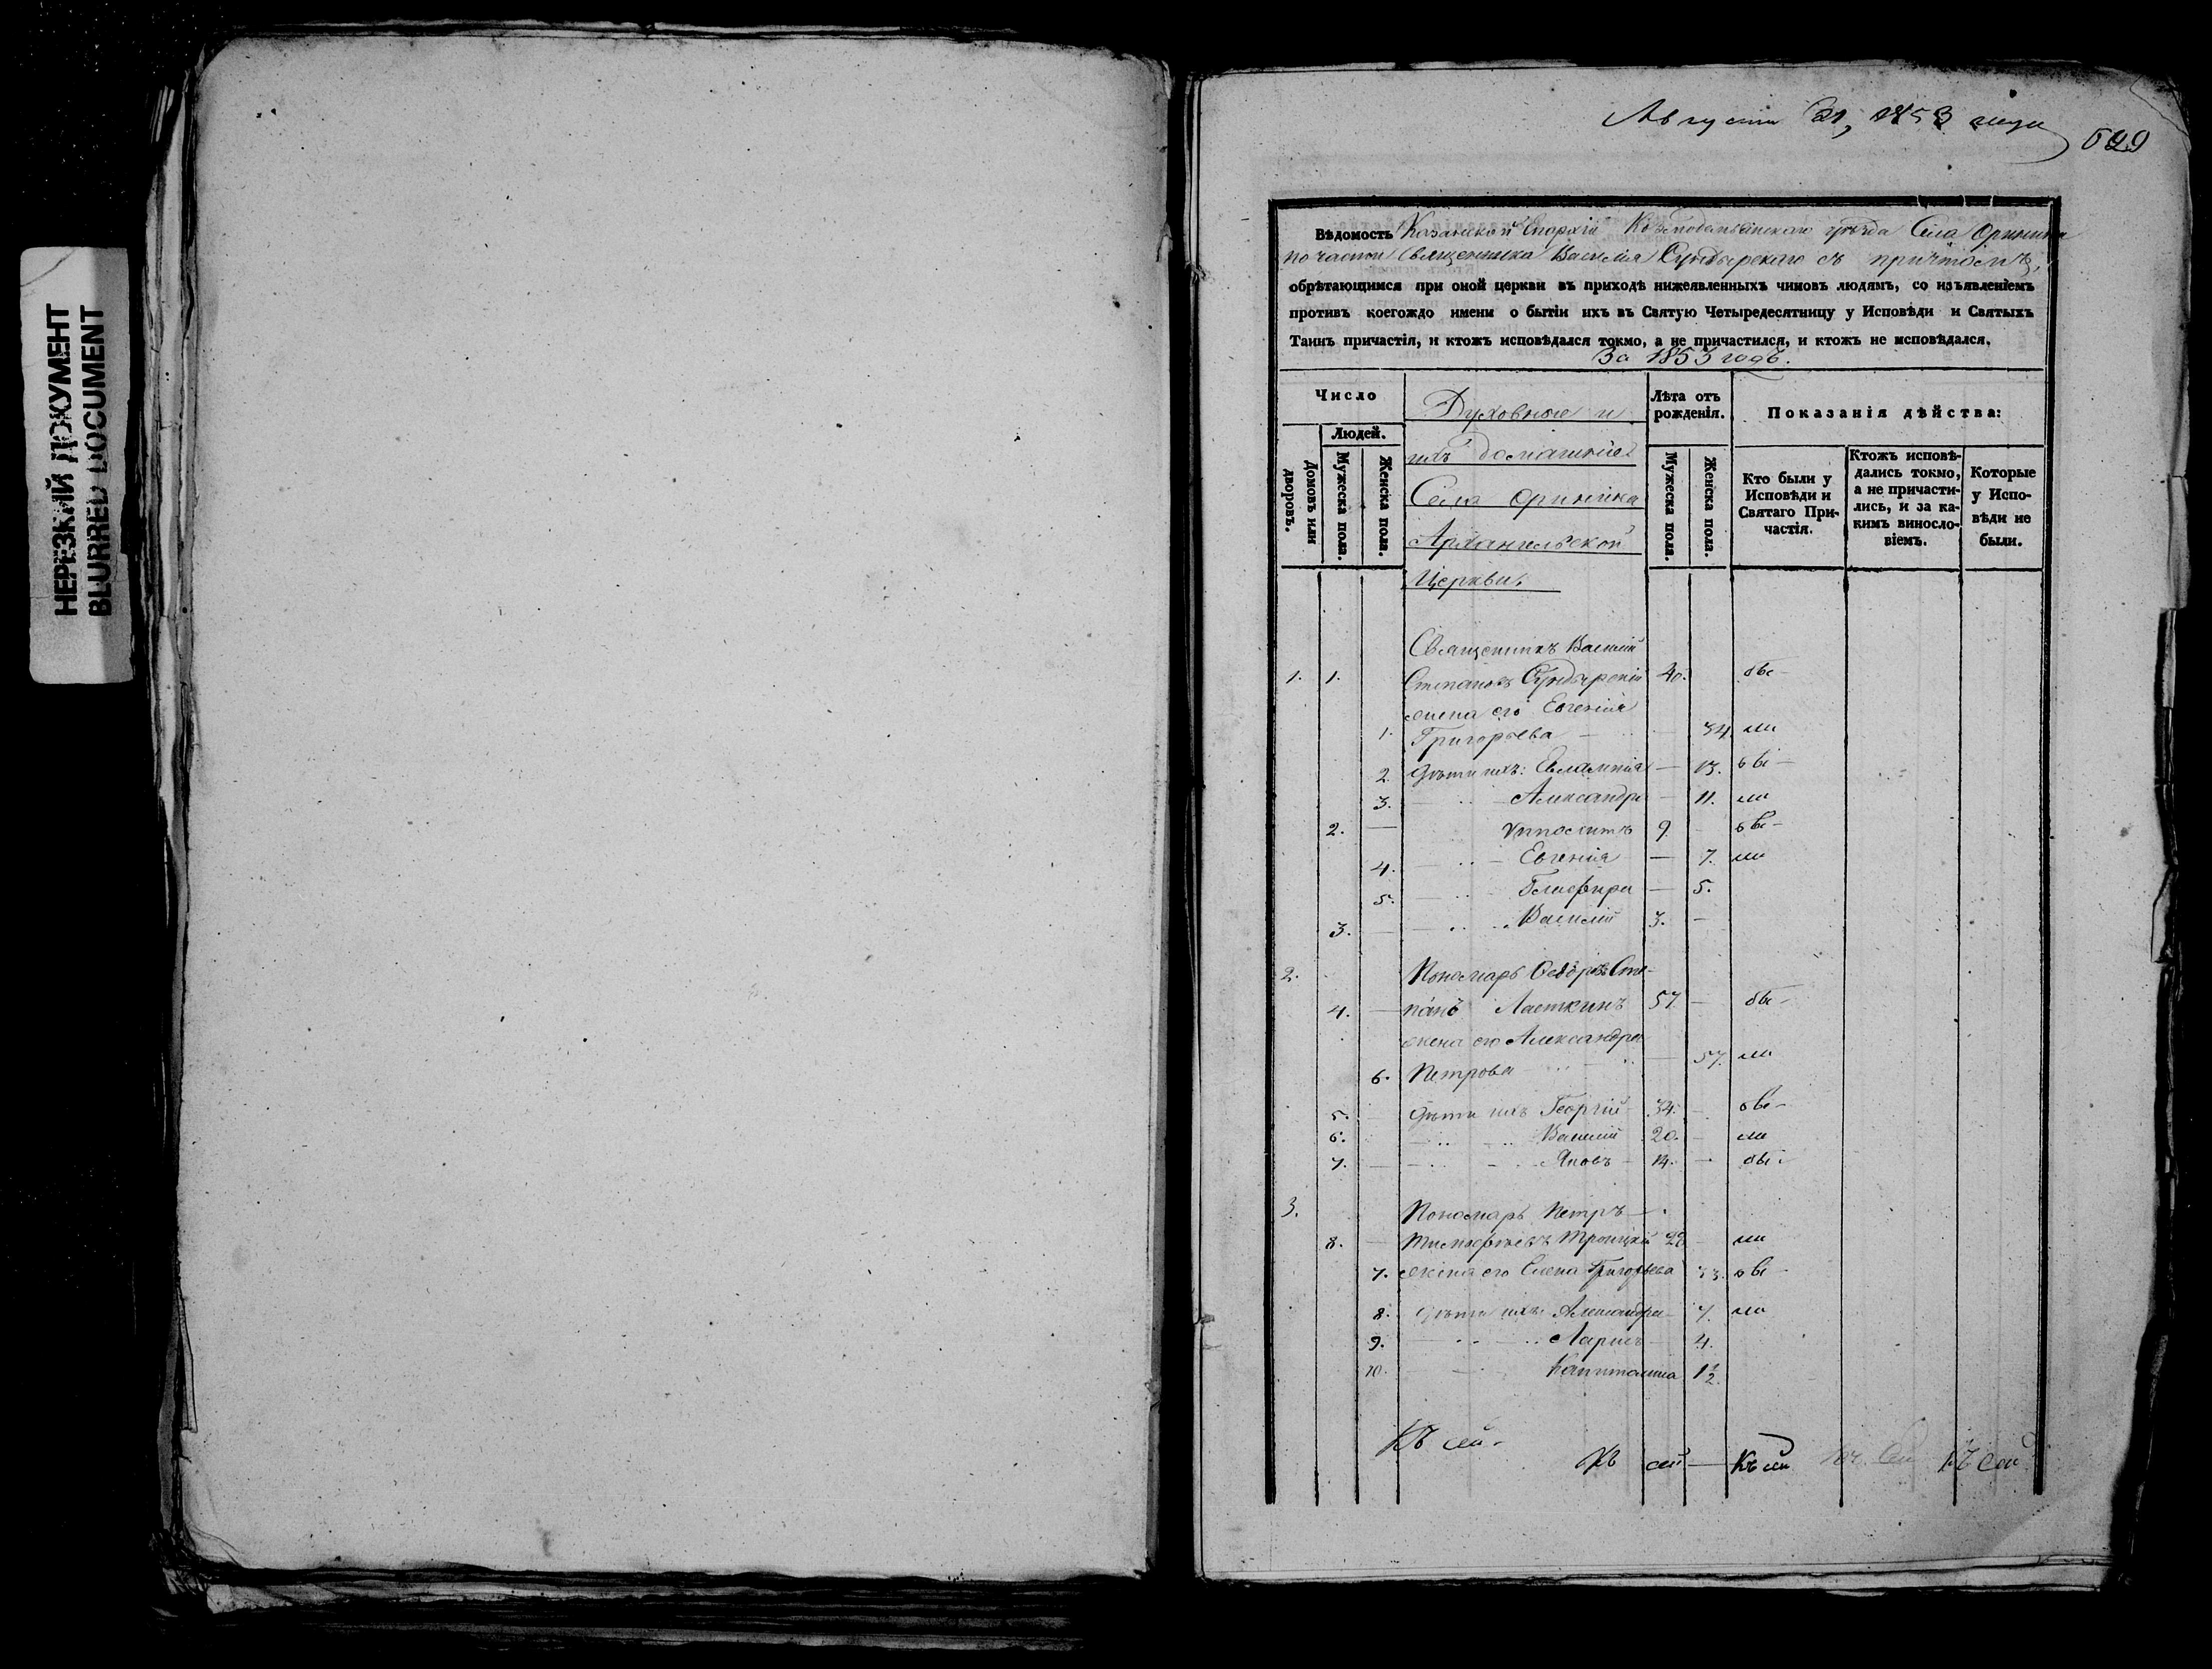 НЕРЕЗКИЙ ДОКУМЕНТ
BLURRED DOCUMENT
Августа 31, 1853 года
Вѣдомость Казанской Епархіи Козмодемьянскаго уѣзда Села Оринина
по части Священника Василія Сундырскаго съ причтомъ,
обрѣтающимся при оной церкви въ приходѣ нижеявленныхъ чиновъ людямъ, со изъявленіемъ
противъ коегождо имени о бытіи ихъ въ Святую Четыредесятницу у Исповѣди и Святыхъ
Таинъ причастія, и ктожъ исповѣдался токмо, а не причастился, и ктожъ не исповѣдался.
За 1853 годъ.
Число
Людей.
Домовъ или дворовъ.
Мужеска пола.
Женска пола.
Духовные и
ихъ домашніе
Села Оринина
Архангельской
Церкви.
Лѣта отъ рожденія.
Мужеска пола.
Женска пола.
Показанія дѣйства:
Кто были у Исповѣди и Святаго Причастія.
Ктожъ исповѣ-
дались токмо,
а не причасти-
лись, и за ка-
кимъ винословіемъ.
Которые
у Испо-
вѣди не
были.
Священникъ Василій
1. 1. Степановъ Сундырскій 40. бы-
жена его Евгенія
1. Григорьева 34. ли
2. Дѣти ихъ: Евлампія 13. бы-
3. Александра 11. ли
2. Ипполитъ 9. бы-
4. Евгенія 7. ли
5. Глафира 5.
3. Василій 3.
2. Пономарь Ѳедоръ Сте-
4. пановъ Ласткинъ 57. бы-
жена его Александра
6. Петрова 57. ли
5. Дѣти ихъ Георгій 34. бы-
6. Василій 20. ли
7. Яковъ 14. бы-
3. Пономарь Петръ
8. Тимофѣевъ Троицкій 28 ли
7. жена его Елена Григорьева 33. бы-
8. Дѣти ихъ: Александра 7. ли
9. Лариса 4.
10. Капиталина 1½.
Къ сей Къ сей Къ сей Къ сей Къ сей